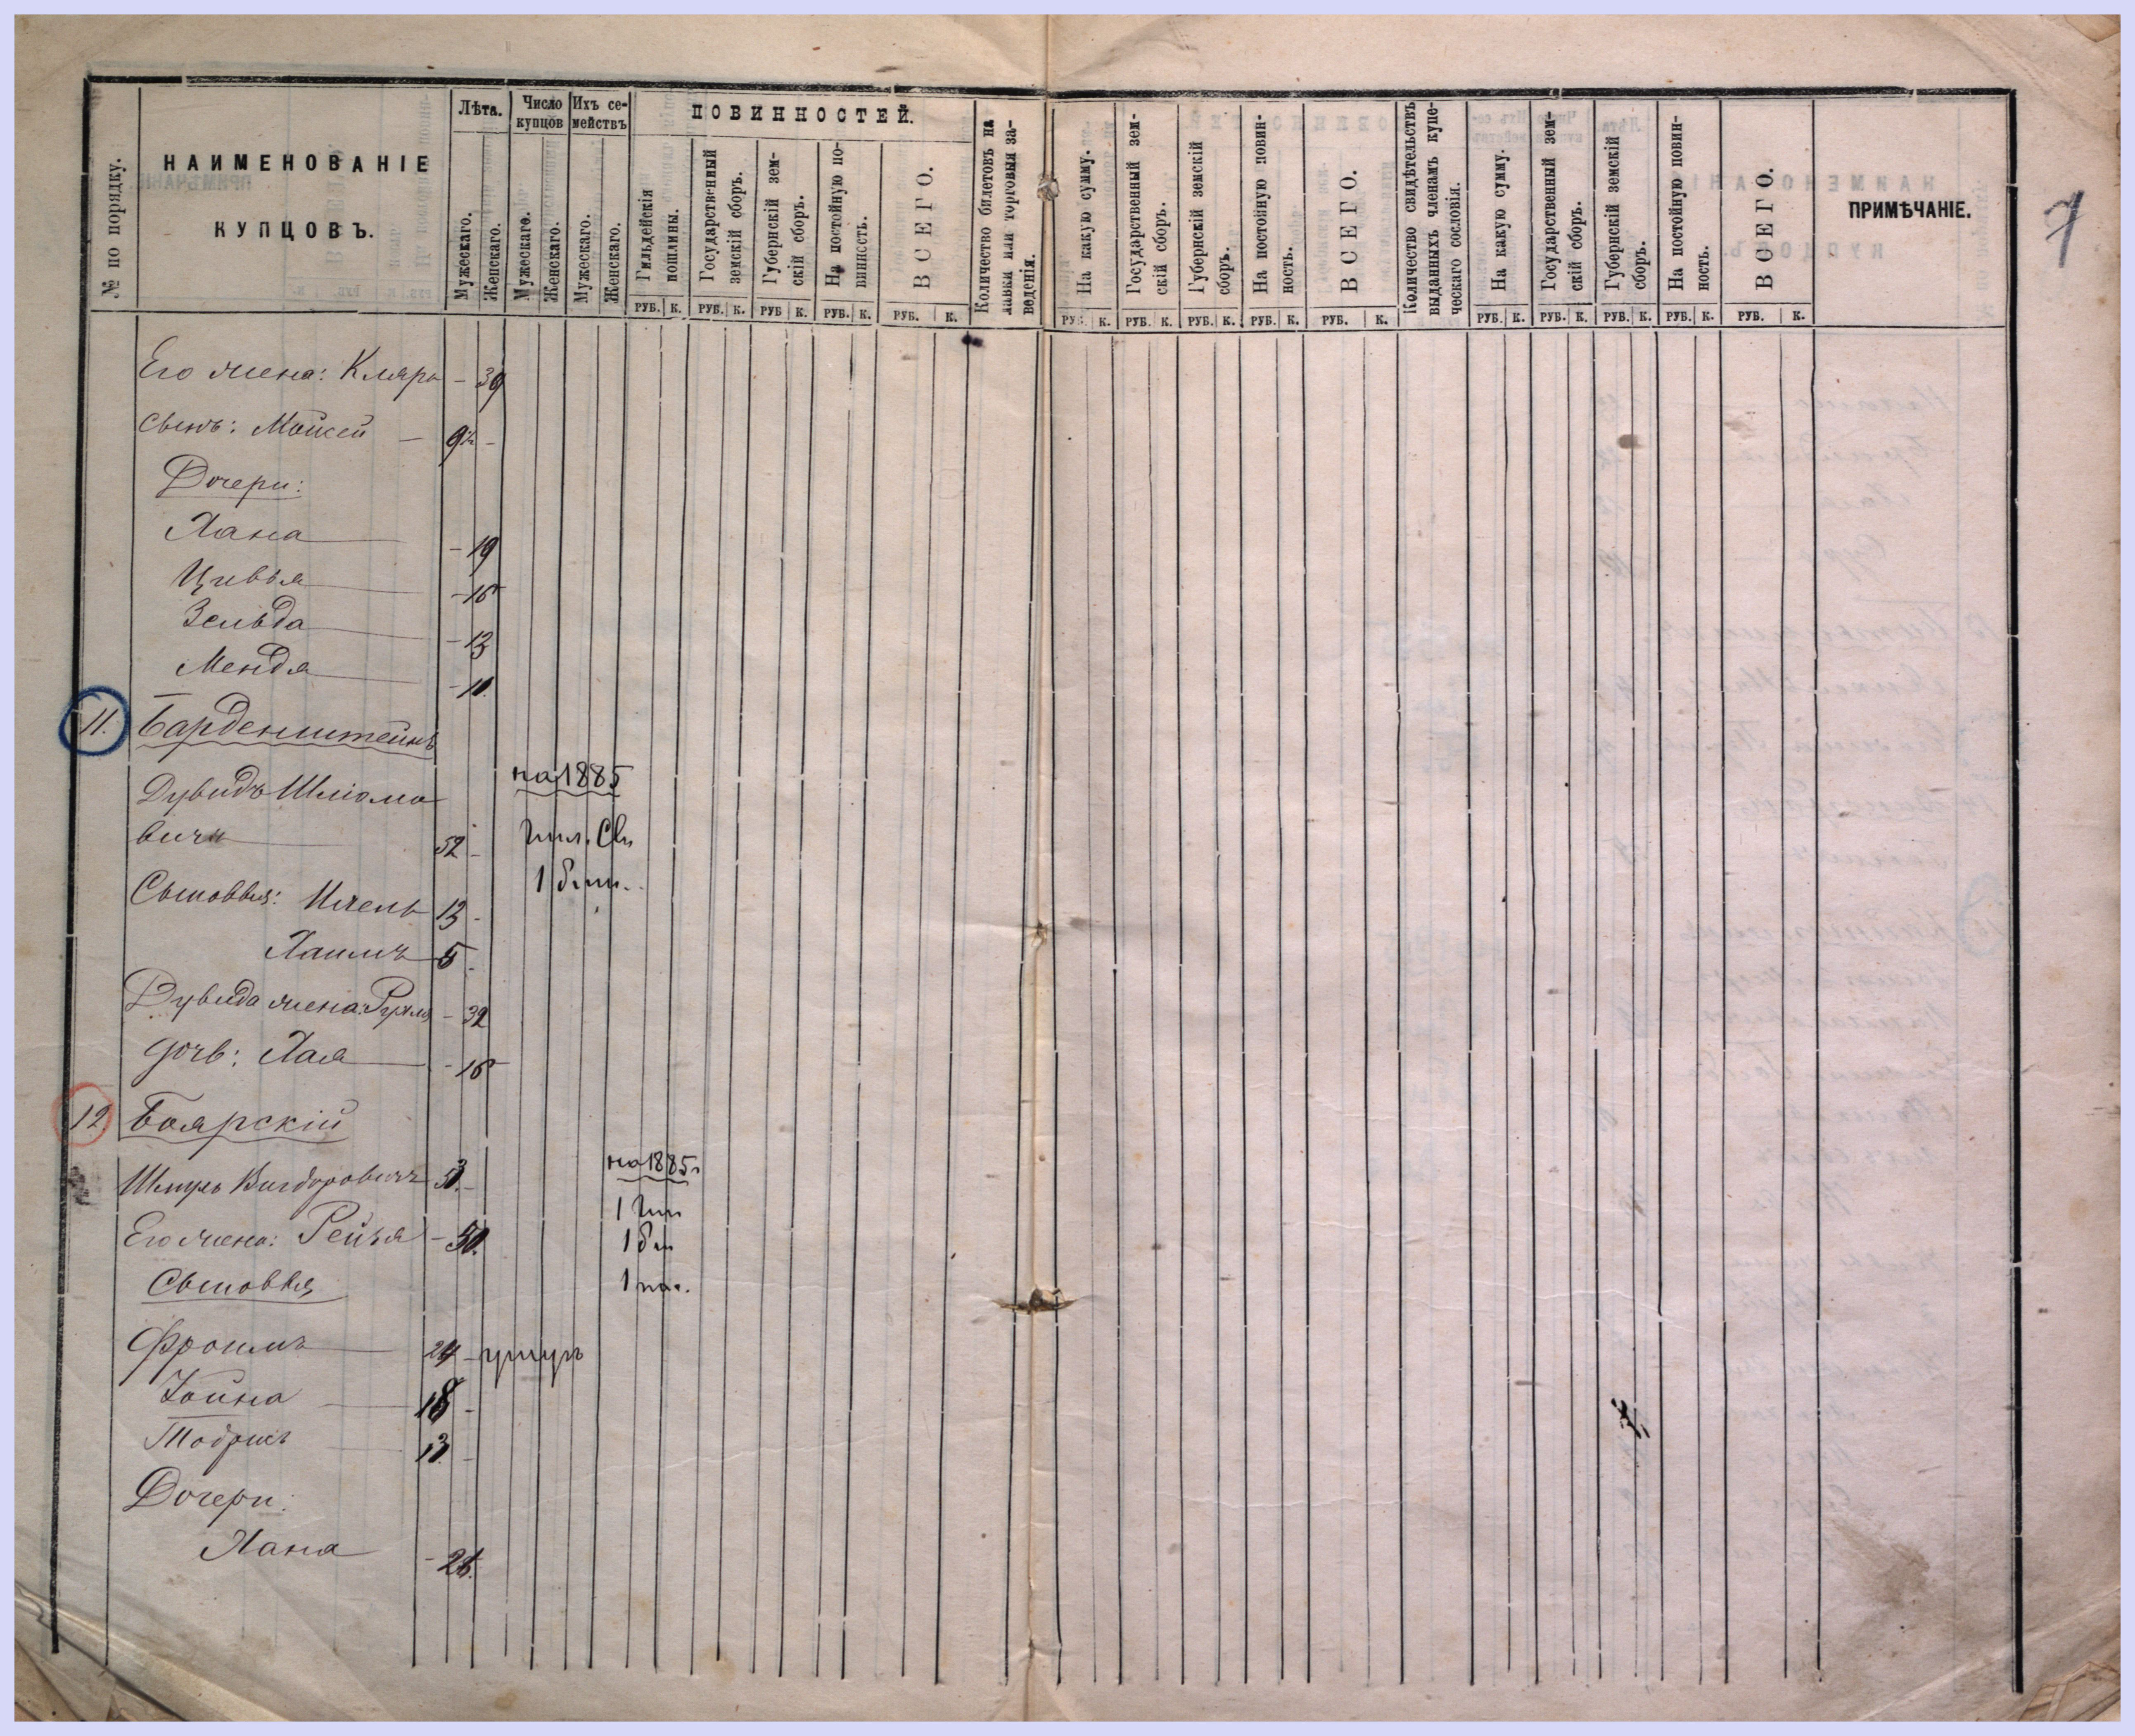 № по порядку.
НАИМЕНОВАНІЕ
КУПЦОВЪ.
Лѣта.
Мужескаго.
Женскаго.
Число купцов
Мужескаго.
Женскаго.
Ихъ се-
мействъ
Мужескаго.
Женскаго.
ПОВИННОСТЕЙ.
Гильдейскія
пошлины.
РУБ. К.
Государственный
земскій сборъ.
РУБ. К.
Губернскій зем-
скій сборъ.
РУБ К.
На постойную по-
винность.
РУБ. К.
ВСЕГО.
РУБ. К.
Количество билетовъ на
лавки или торговыя за-
веденія.
На какую сумму.
РУБ. К.
Государственный зем-
скій сборъ.
РУБ. К.
Губернскій земскій
сборъ.
РУБ. К.
На постойную повин-
ность.
РУБ. К.
ВСЕГО.
РУБ. К.
Количество свидѣтельствъ
выданныхъ членамъ купе-
ческаго сословія.
На какую сумму.
РУБ. К.
Государственный зем-
скій сборъ.
РУБ. К.
Губернскій земскій
сборъ.
РУБ. К.
На постойную повин-
ность.
РУБ. К.
ВСЕГО.
РУБ. К.
ПРИМѢЧАНІЕ.
7
Его жена: Кляра - 39
сынъ: Мойсей -
Дочери:
Хана - 19
Цивья - 16
Зельда - 13
Мендя - 10.
11. Барденштейнъ
на 1885
Дувидъ Шліома
вичъ 52 -
Гил. Св.
1 бил.
Сыновья: Ицель 13 -
Хаимъ 5 -
Дувида жена: Рухля - 32
дочь: Хая - 16
12. Боярскій
на 1885 г
Шмуль Вигдоровичъ 53. -
1 Гил
Его жена: Рейзя - 50.
1 бил
Сыновья
Фроимъ 24 -
Хойна 18 -
Тодрисъ 13 -
Дочери:
Хана - 21.